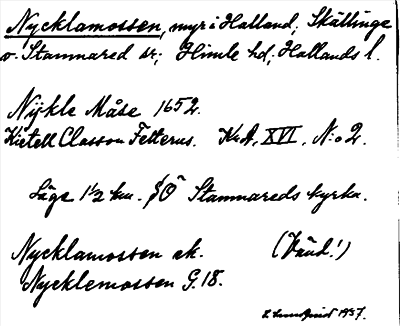 Nycklamossen, myr i Halland; Skällinge
o. Stamnared sr; Himle hd; Hallands l.
Nÿkle Måse 1652.
Kietell Classon Felterus. KrA, XVI, N:o 2.
Läge 1½ km. SÖ Stamnareds kyrka.
Nycklamossen ek. (Vänd!)
Nycklemossen G.18.
Lundquist 1937.